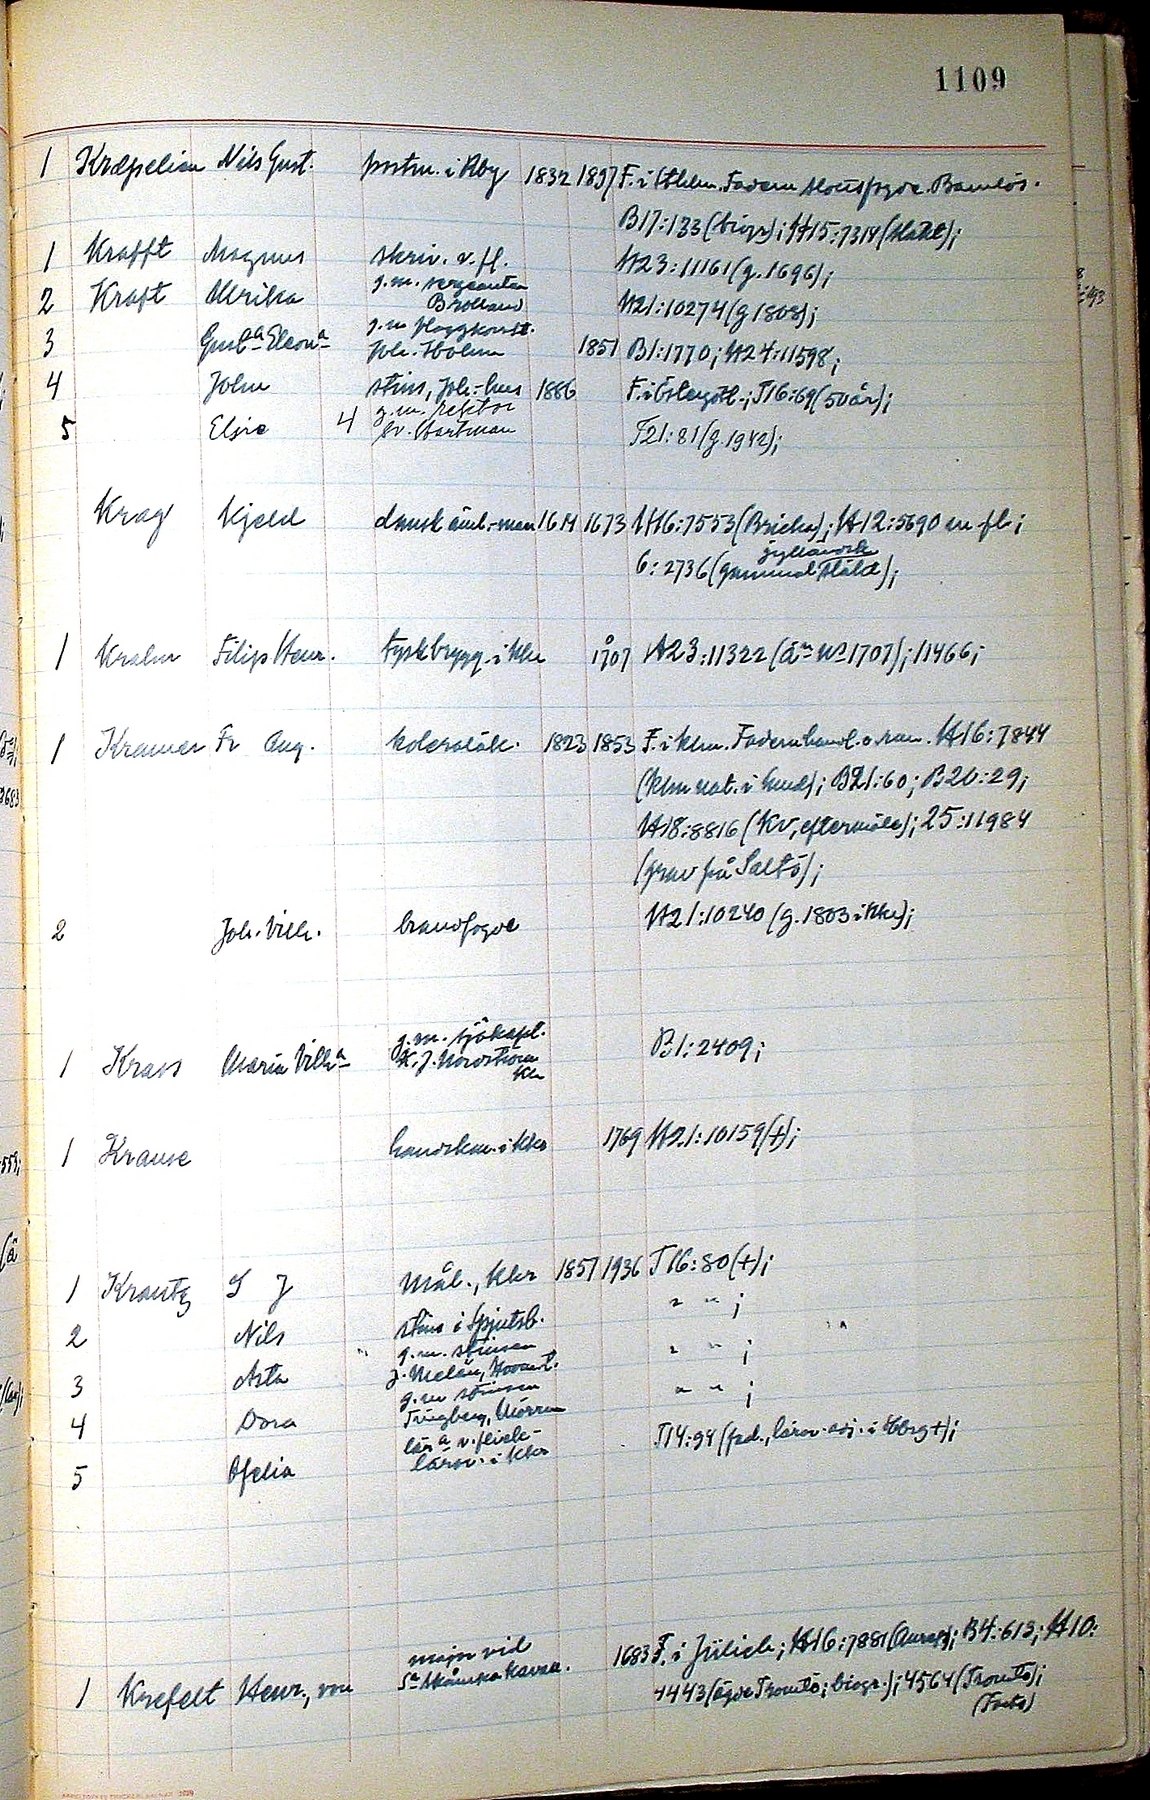 1109
1 Kræpelien Nils Gust. postm. i Rby 1832 1897 F. i Sthlm. Fadern slottsfogde. Barnlös.
B17:133 (biogr); H15:7314 (släkt);
1 Krafft Magnus skriv. v. fl. H23:11161 (g. 1696);
2 Kraft Ulrika g.m. sergeanten H21:10274 (g 1808);
3 Gust.a Eleon.a g.m flaggkonst. Joh. Holm 1851 B1:1770; H24:11598;
4 John stins, Joh:hus 1886 F. i Östergötl.; T16:69 (50 år);
5 Elsie 4 g.m. rektor Hartman T21:81 (g. 1942);
Krag Kjeld dansk ämb.-man 16 1673 H16:7553 (Bricka); H12:5690 m fl;
jylländsk
6:2736 (gammal släkt);
1 Krahn Filip Henr. tysk brygg. i Kkr 1707 H23:11322 (å no 1707); 11466;
1 Kramer Fr Aug. koleraläk. 1823 1853 F. i Klm. Fadern handl. o. ram. H16:7844
(klm nat. i Lund); B21:60; B20:29;
H18:8816 (Kv, eftermäle); 25:11984
(grav på Saltö);
2 Joh. Vilh. brandfogde H21:10240 (g. 1803 i Kkr);
g.m. sjökapt.
1 Krass Maria Vilh.a K. J. Nordström B1:2409;
Kkr
1 Krause handskm. i Kkr 1769 H21:10159 (+);
1 Krantz S J Mål., Kkr 1857 1936 T16:80 (+);
2 Nils stins i Spjutsb. " " ;
3 Asta g.m. stinsen J. Melén, " " ;
4 Dora g.m stinsen Tingberg, Mörrum " " ;
5 Ofelia lär.a v. flick- lärov. i Kkr T14:94 (fad., lärov. adj. i Hbrg +);
major vid
1 Krefelt Henr. von Sa Skånska kavall. 1683 F. i Jülich; H16:7881 (); B4:613; H10:
4443 (ägde Tromtö; biogr.); 4564 (Tromtö);